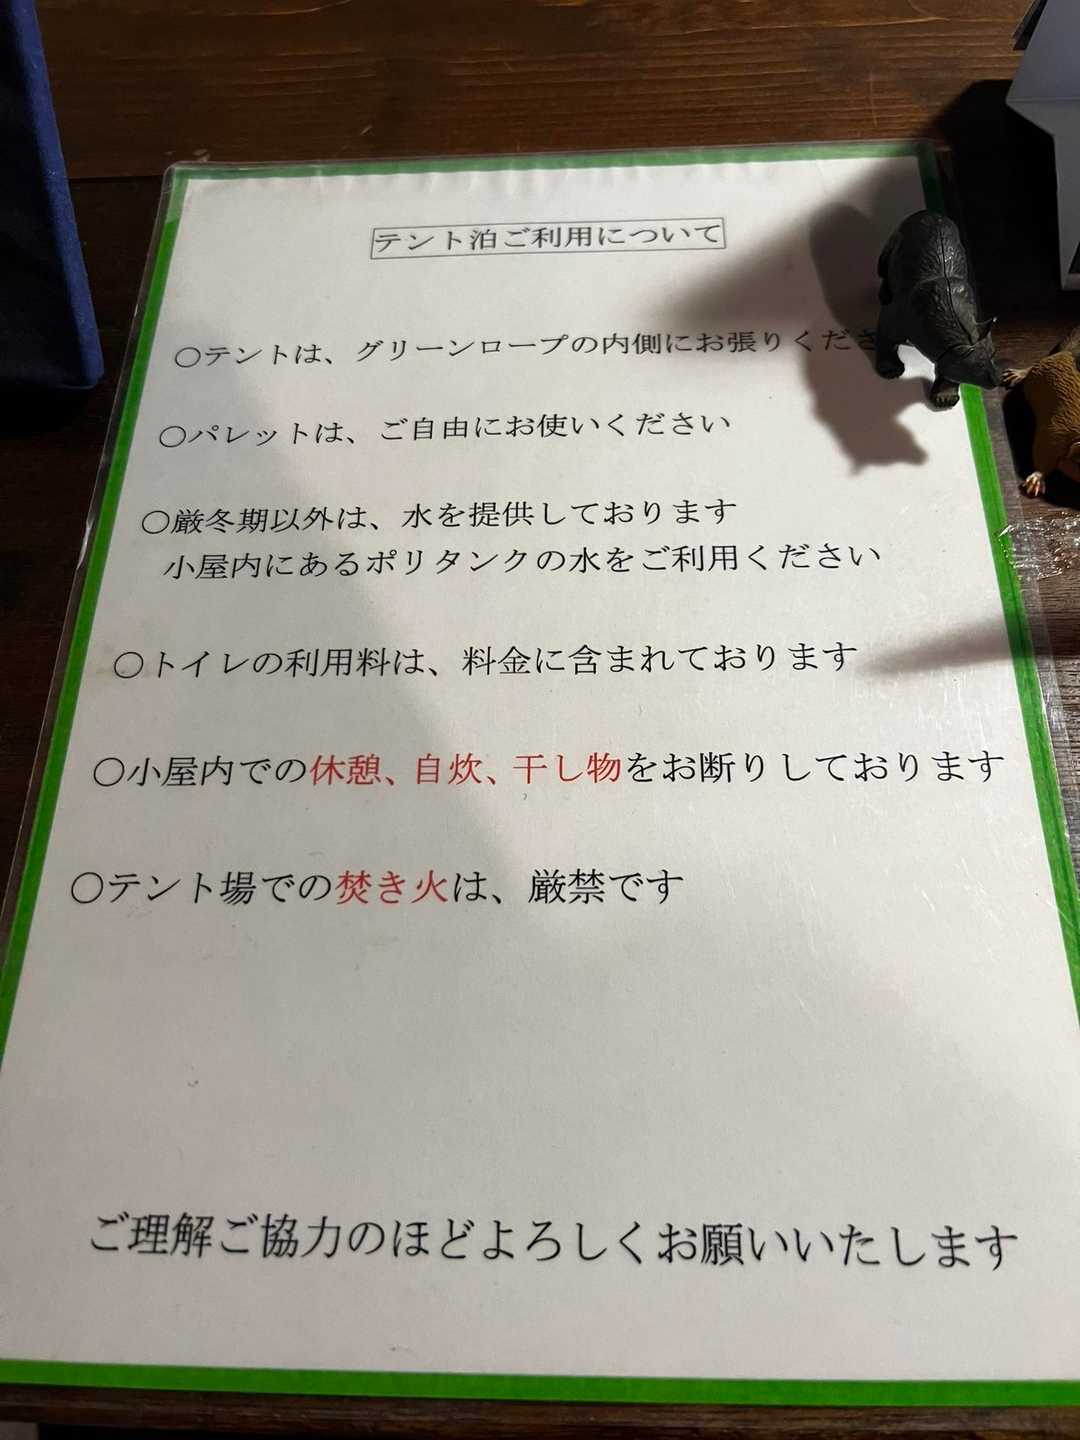 テント泊ご利用について
○テントは、グリーンロープの内側にお張りくださ
○パレットは、ご自由にお使いください
○厳冬期以外は、水を提供しております
小屋内にあるポリタンクの水をご利用ください
○トイレの利用料は、料金に含まれております
○小屋内での休憩、自炊、干し物をお断りしております
○テント場での焚き火は、厳禁です
ご理解ご協力のほどよろしくお願いいたします